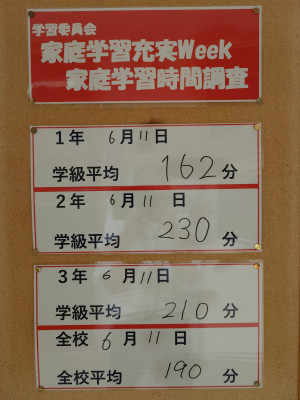 学習委員会
家庭学習充実Week
家庭学習時間調査
1年 6月11日
学級平均 162分
2年 6月11日
学級平均 230分
3年 6月11日
学級平均 210分
全校 6月11日
全校平均 190分